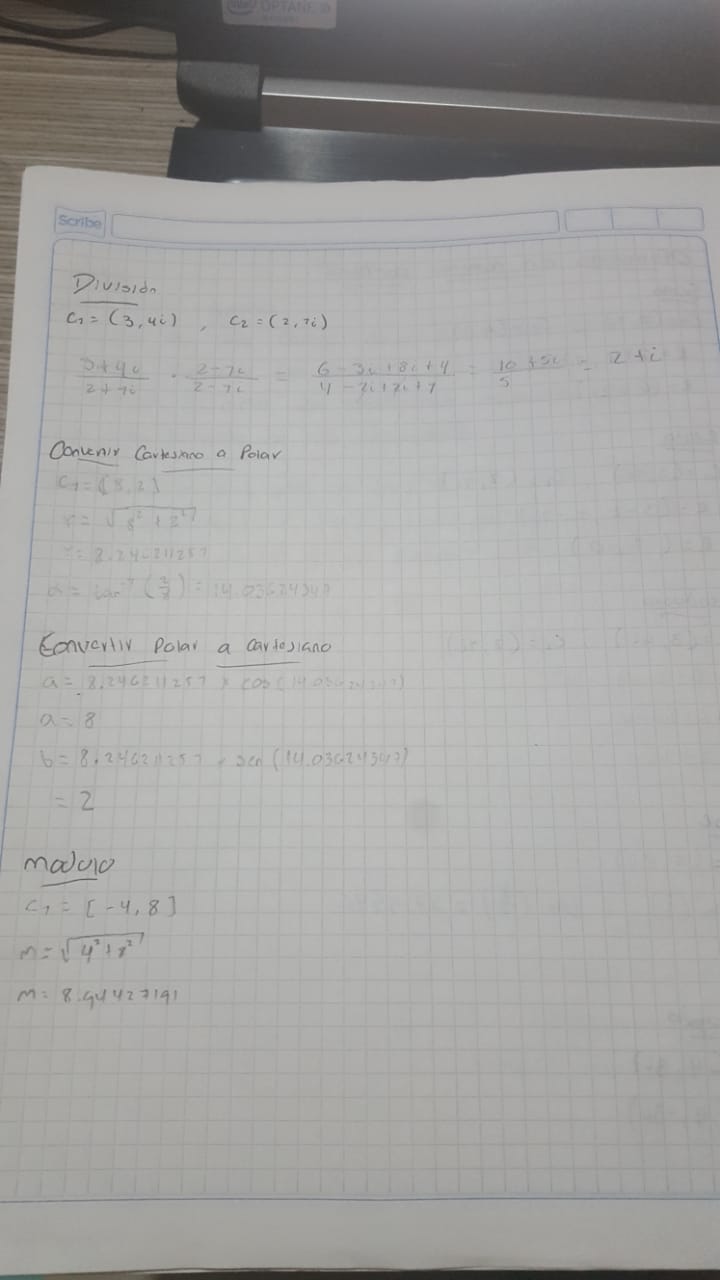 intel OPTANE
Scribe
División
C₁ = (3, 4i) , C₂ = (2, 1i)
3+4i / 2+1i · 2-1i / 2-1i = 6-3i+8i+4 / 4-2i+2i+1 = 10+5i / 5 = 2+i
Convertir Cartesiano a Polar
C₁ = [8, 2]
r = √8²+2²
r = 8.246211257
α = tan⁻¹ (2/8) = 14.03624347
Convertir Polar a Cartesiano
a = 8.246211257 * cos(14.03624347)
a = 8
b = 8.246211257 * sen(14.03624347)
= 2
Modulo
C₁ = [-4, 8]
m = √4²+8²
m = 8.94427191